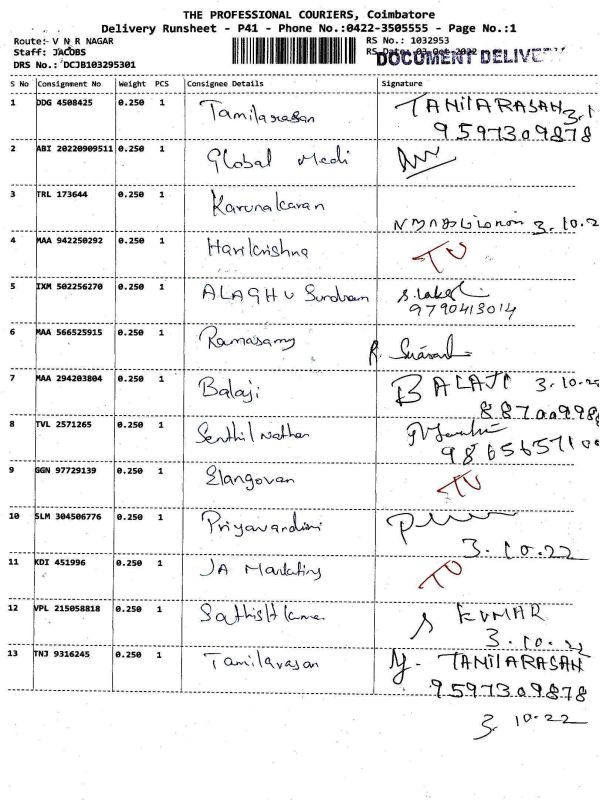 THE PROFESSIONAL COURIERS, Coimbatore
Delivery Runsheet - P41 - Phone No.:0422-3505555 - Page No.:1
Route:- V N R NAGAR RS No.: 1032953
Staff: JACOBS RS Date: 03-Oct-2022
DRS No.: DCJB103295301 DOCUMENT DELIVE
S No Consignment No Weight PCS Consignee Details Signature
1 DDG 4508425 0.250 1 Tamilarasan TAMILARASAN 3.1
9597309878
2 ABI 20220909511 0.250 1 Global Medi
3 TRL 173644 0.250 1 Karunakaran
3.10.2
4 MAA 942250292 0.250 1 Harikrishna TU
5 IXM 502256270 0.250 1 ALAGHU Sundram
9790413014
6 MAA 566525915 0.250 1 Ramasamy
7 MAA 294203804 0.250 1 Balaji BALAJI 3.10.22
8870099
8 TVL 2571265 0.250 1 Senthil nathan
9865657100
9 GGN 97729139 0.250 1 Elangovan TU
10 SLM 304506776 0.250 1 Priyavardini
3.10.22
11 KDI 451996 0.250 1 JA Marketing TU
12 VPL 215058818 0.250 1 Sathish Kumar S KUMAR
3.10.22
13 TNJ 9316245 0.250 1 Tamilarasan M. TAMILARASAN
9597309878
3.10-22